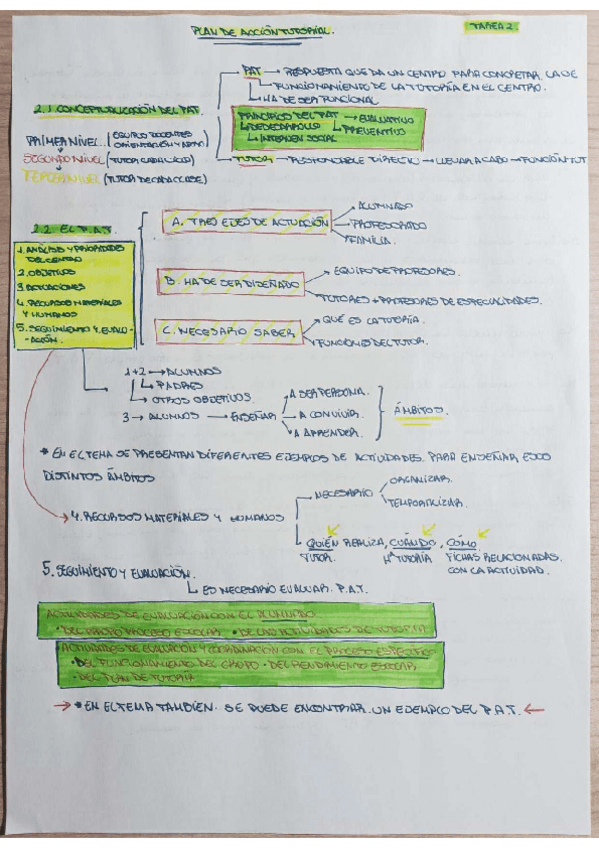 PLAN DE ACCIÓN TUTORIAL.
TAREA 2.
PAT → RESPUESTA QUE DA UN CENTRO PARA CONCRETAR LA O.E
FUNCIONAMIENTO DE LA TUTORÍA EN EL CENTRO.
HA DE SER FUNCIONAL
2.1 CONCEPTUALIZACIÓN DEL PAT.
PRINCIPIOS DEL PAT → EVALUATIVO
DE DESARROLLO PREVENTIVO
INTERVEN SOCIAL
PRIMER NIVEL (EQUIPO DOCENTES
ORIENTACIÓN Y APOYO)
SEGUNDO NIVEL (TUTOR CADA CICLO)
TERCER NIVEL (TUTOR DE CADA CLASE)
TUTOR → RESPONSABLE DIRECTO → LLEVAR A CABO → FUNCIÓN TUT
2.2 EL P.A.T.
1. ANÁLISIS Y PRIORIDADES
DEL CENTRO
2. OBJETIVOS
3 ACTUACIONES
4. RECURSOS MATERIALES
Y HUMANOS
5. SEGUIMIENTO Y EVALU-
-ACIÓN.
A. TRES EJES DE ACTUACIÓN
ALUMNADO
PROFESORADO
FAMILIA.
B. HA DE SER DISEÑADO
EQUIPO DE PROFESORES.
TUTORES + PROFESORES DE ESPECIALIDADES.
C. NECESARIO SABER
QUÉ ES LA TUTORÍA.
FUNCIONES DEL TUTOR.
1+2 → ALUMNOS
PADRES
OTROS OBJETIVOS.
3 → ALUMNOS → ENSEÑAR
A SER PERSONA.
A CONVIVIR.
A APRENDER.
ÁMBITOS.
* EN EL TEMA SE PRESENTAN DIFERENTES EJEMPLOS DE ACTIVIDADES. PARA ENSEÑAR ESOS
DISTINTOS ÁMBITOS
4. RECURSOS MATERIALES Y HUMANOS
NECESARIO
ORGANIZAR.
TEMPORALIZAR.
QUIÉN REALIZA, CUÁNDO, CÓMO
TUTOR. Hª TUTORÍA FICHAS RELACIONADAS.
CON LA ACTIVIDAD.
5. SEGUIMIENTO Y EVALUACIÓN.
ES NECESARIO EVALUAR P.A.T.
ACTIVIDADES DE EVALUACIÓN CON EL ALUMNADO
• DEL PROPIO PROCESO ESCOLAR • DE LAS ACTIVIDADES DE TUTORÍA
ACTIVIDADES DE EVALUACIÓN Y COORDINACIÓN CON EL PROCESO ESPECÍFICO
• DEL FUNCIONAMIENTO DEL GRUPO • DEL RENDIMIENTO ESCOLAR
• DEL PLAN DE TUTORÍA
→ * EN EL TEMA TAMBIÉN SE PUEDE ENCONTRAR UN EJEMPLO DEL P.A.T. ←